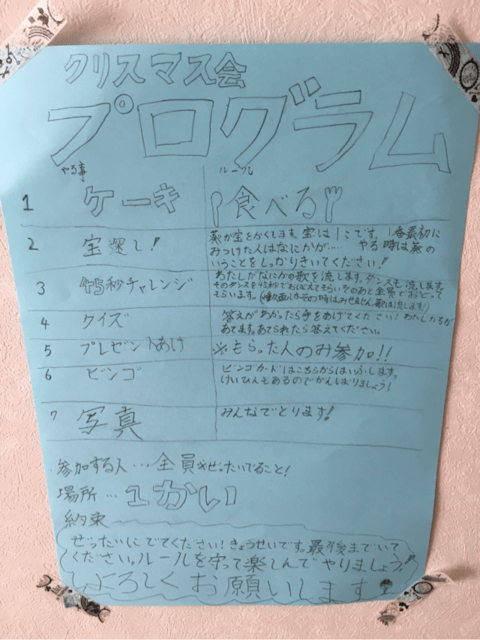 クリスマス会
プログラム
やる事 ルール
1 ケーキ 食べる
2 宝探し! 葵が宝をかくします。宝は1こです。1番最初に
みつけた人はなにかが…… やる時は葵の
いうことをしっかりきいてください!
3 45秒チャレンジ わたしがなにかの歌を流します。ダンスも流します。
そのダンスを45秒でおぼえてもらいそのあと全員でおどって
もらいます。
4 クイズ 答えがわかったら手をあげてください!わたしたちが
あてます。あてられたら答えてください。
5 プレゼントあけ ※もらった人のみ参加!!
6 ビンゴ ビンゴカードはこちらからはいふします。
けいひんもあるのでがんばりましょう!
7 写真 みんなでとります!
・参加する人…全員※ぜったいでること!
場所…1かい
約束
ぜったいにでてください!きょうせいです。最後までいて
ください。ルールを守って楽しんでやりましょう!!
よろしくお願いします